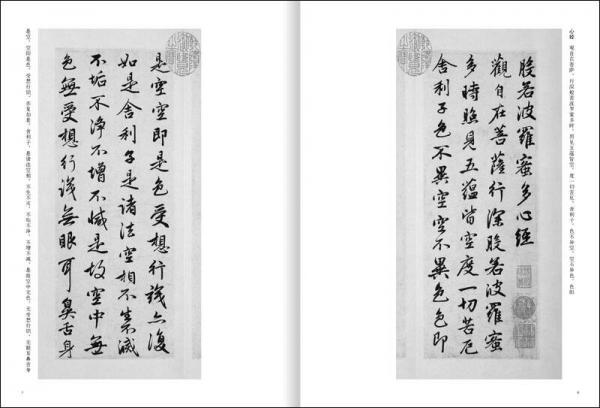 心经 观自在菩萨，行深般若波罗蜜多时，照见五蕴皆空，度一切苦厄。舍利子，色不异空，空不异色，色即
般若波羅蜜多心經
觀自在菩薩行深般若波羅蜜
多時照見五蘊皆空度一切苦厄
舍利子色不異空空不異色色即
是空空即是色受想行識亦復
如是舍利子是諸法空相不生滅
不垢不净不增不减是故空中無
色無受想行識無眼耳鼻舌身
是空，空即是色，受想行识，亦复如是。舍利子，是诸法空相，不生不灭，不垢不净，不增不减。是故空中无色，无受想行识，无眼耳鼻舌身